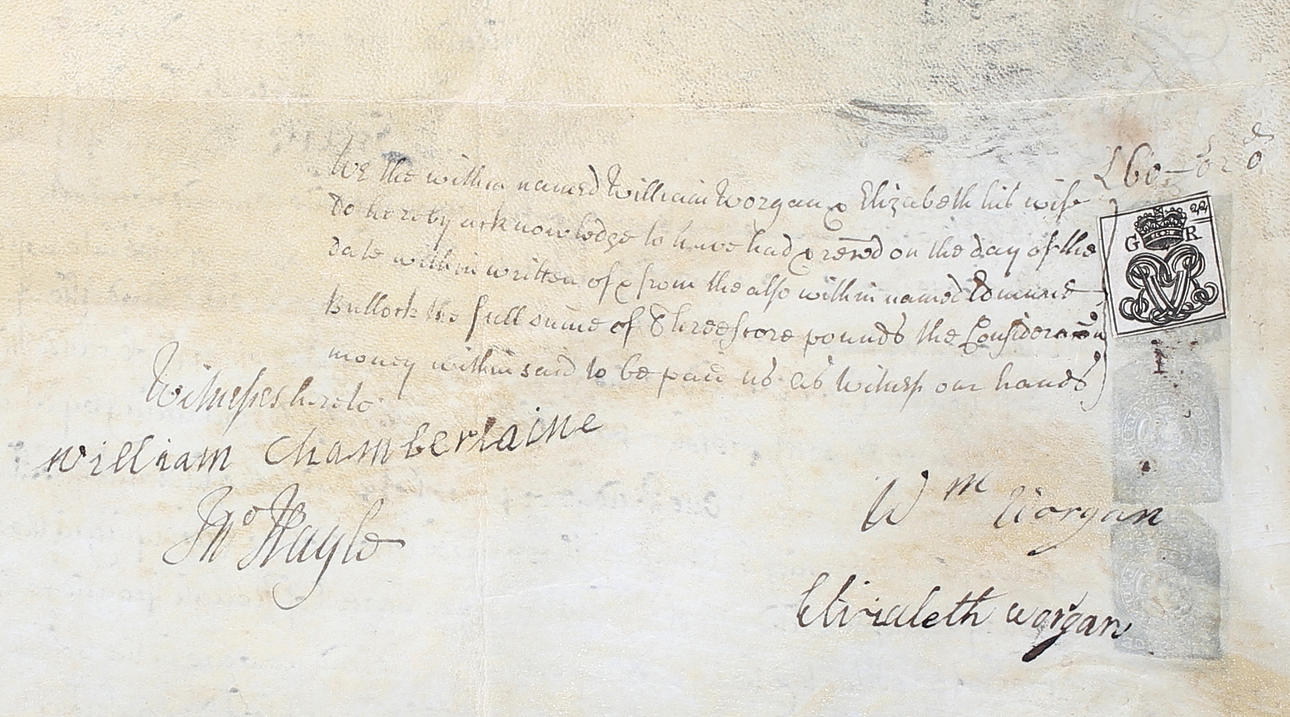 We the within named William Worgan & Elizabeth his wife
Do hereby acknowledge to have had & reced on the day of the
Date within written of & from the also within named Edmund
Bullock the full sume of Threescore pounds the Consideracon
money within said to be paid us as Witness our hands
£60 – 0 – 0
s d
G R
Witnesses hereto
William Chamberlaine
Jno Nayle
Wm Worgan
Elizabeth worgan